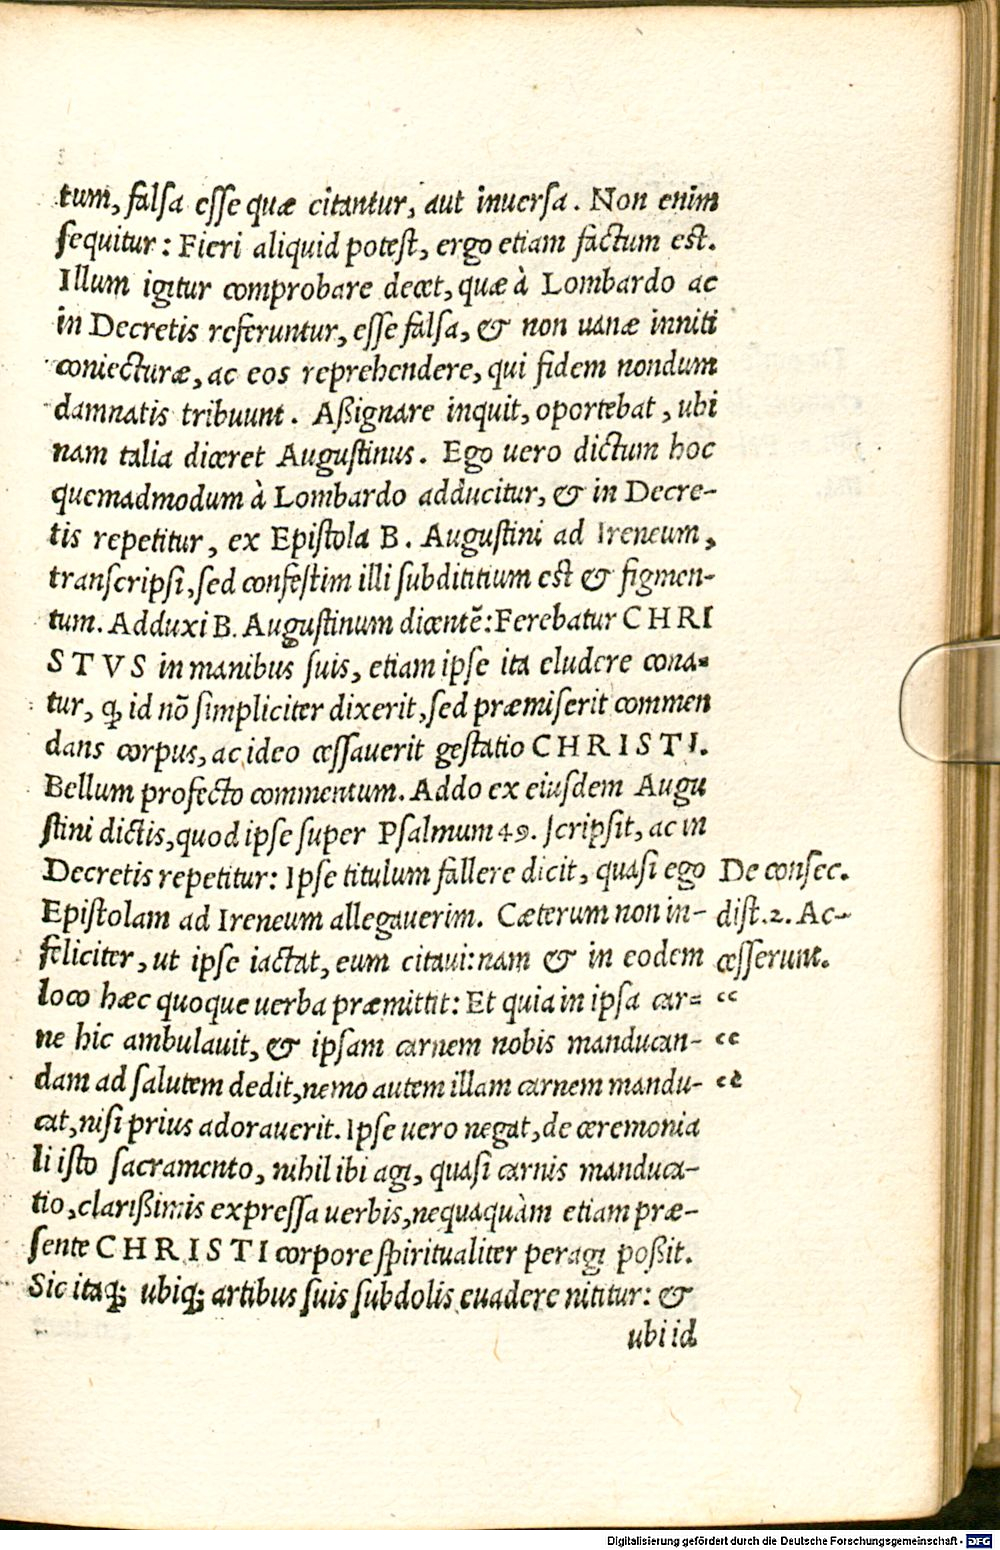 tum, falsa esse quæ citantur, aut inuersa. Non enim
sequitur: Fieri aliquid potest, ergo etiam factum est.
Illum igitur comprobare decet, quæ à Lombardo ac
in Decretis referuntur, esse falsa, & non uanæ inniti
coniecturæ, ac eos reprehendere, qui fidem nondum
damnatis tribuunt. Aßignare inquit, oportebat, ubi
nam talia diceret Augustinus. Ego uero dictum hoc
quemadmodum à Lombardo adducitur, & in Decre-
tis repetitur, ex Epistola B. Augustini ad Ireneum,
transcripsi, sed confestim illi subdititium est & figmen-
tum. Adduxi B. Augustinum dicentẽ: Ferebatur CHRI
STVS in manibus suis, etiam ipse ita eludere cona-
tur, ꝙ id nõ simpliciter dixerit, sed præmiserit commen
dans corpus, ac ideo cessauerit gestatio CHRISTI.
Bellum profecto commentum. Addo ex eiusdem Augu
stini dictis, quod ipse super Psalmum 49. scripsit, ac in
Decretis repetitur: Ipse titulum fallere dicit, quasi ego
De consec.
Epistolam ad Ireneum allegauerim. Cæterum non in-
dist. 2. Ac-
feliciter, ut ipse iactat, eum citaui: nam & in eodem
cesserunt.
loco hæc quoque uerba præmittit: Et quia in ipsa car-
“
ne hic ambulauit, & ipsam carnem nobis manducan-
“
dam ad salutem dedit, nemo autem illam carnem mandu-
“
cat, nisi prius adorauerit. Ipse uero negat, de ceremonia
li isto sacramento, nihil ibi agi, quasi carnis manduca-
tio, clarißimis expressa uerbis, nequaquàm etiam præ-
sente CHRISTI corpore spiritualiter peragi poßit.
Sic itaq; ubiq; artibus suis subdolis euadere nititur: &
ubi id
Digitalisierung gefördert durch die Deutsche Forschungsgemeinschaft - DFG